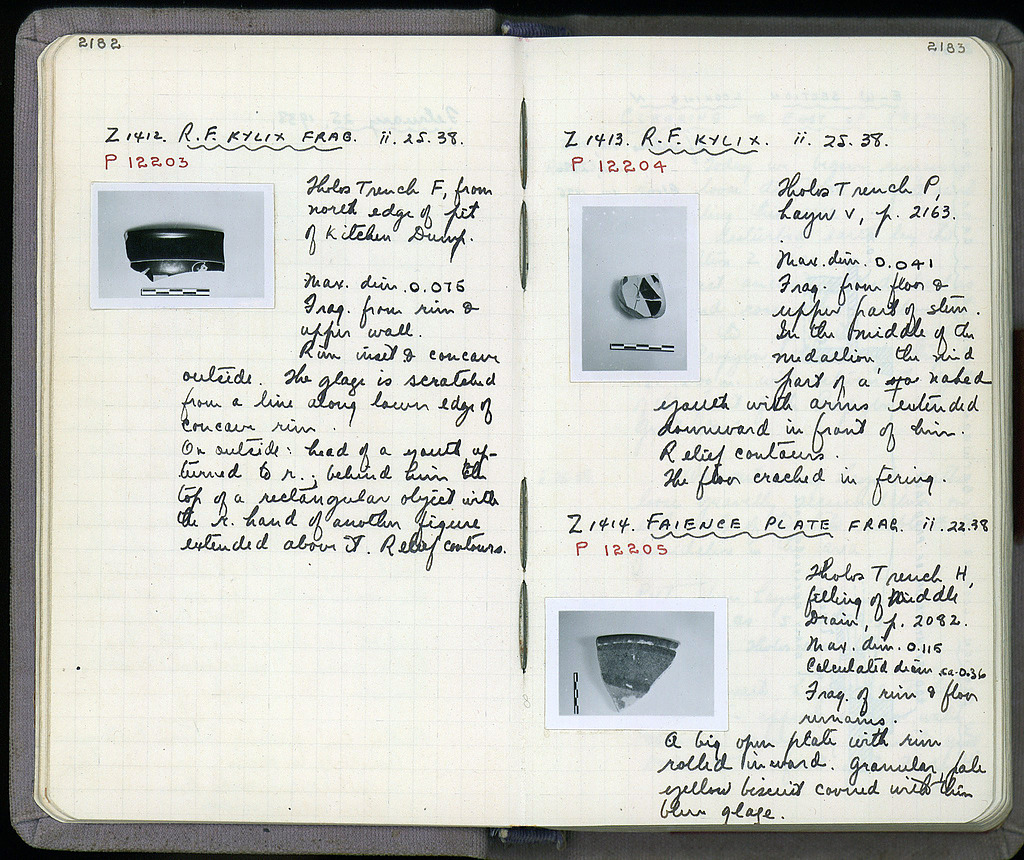 2182
Z 1412. R.F. KYLIX FRAG. ii. 25. 38.
P 12203
Tholos Trench F, from
north edge of pit
of Kitchen Dump.
Max. dim. 0.075
Frag. from rim &
upper wall.
Rim inset & concave
outside. The glaze is scratched
from a line along lower edge of
concave rim.
On outside: head of a youth up-
turned to r.; behind him the
top of a rectangular object with
the r. hand of another figure
extended above it. Relief contours.
2183
Z 1413. R.F. KYLIX. ii. 25. 38.
P 12204
Tholos Trench P,
Layer V, p. 2163.
Max. dim. 0.041
Frag. from floor &
upper part of stem.
In the middle of the
medallion the mid
part of a naked
youth with arms extended
downward in front of him.
Relief contours.
The floor cracked in firing.
Z 1414. FAIENCE PLATE FRAG. ii. 22.38
P 12205
Tholos Trench H,
filling of Middle
Drain, p. 2082.
Max. dim. 0.115
Calculated diam. ca. 0.36
Frag. of rim & floor
remains.
A big open plate with rim
rolled inward. Granular, pale
yellow biscuit covered with thin
blue glaze.